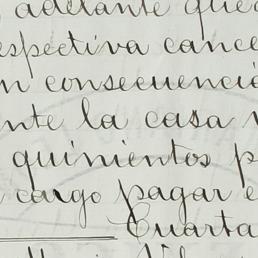 adelante que
espectiva cance
n consecuencia
nte la casa
quinientos p
cargo pagar e
Cuarta